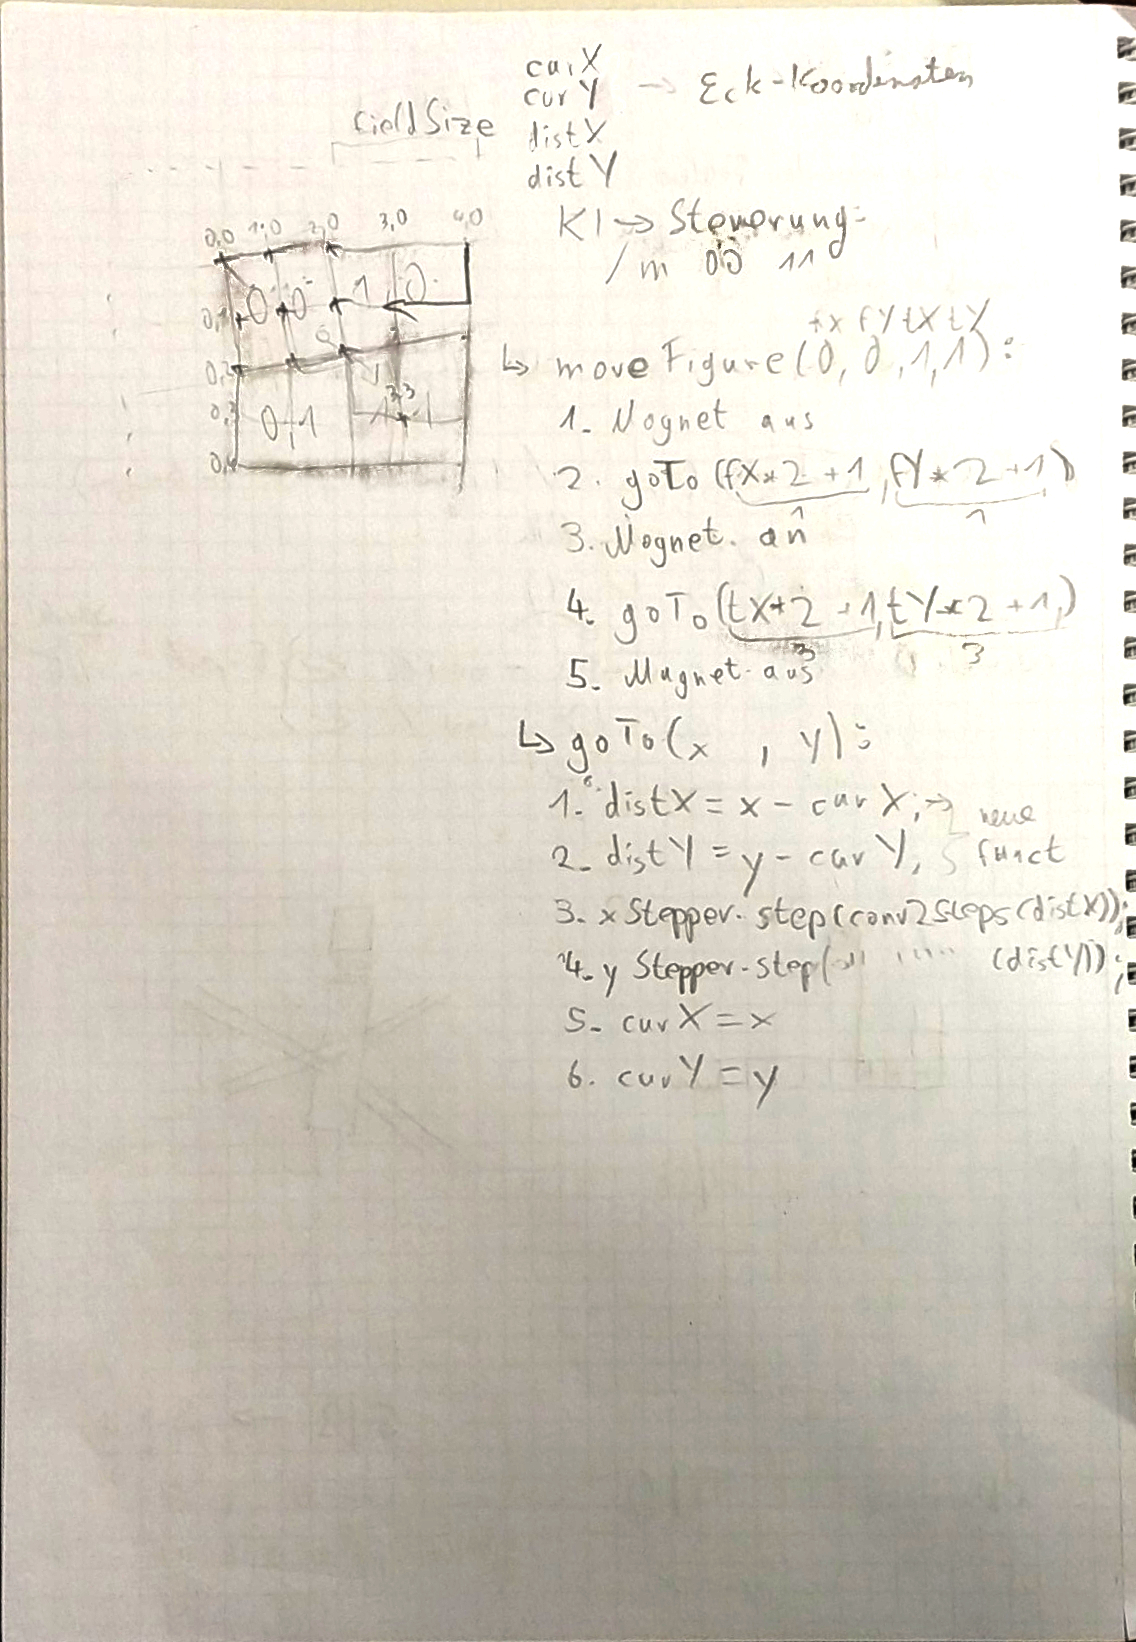 curX
curY → Eck-Koordinaten
fieldSize
distX
distY
KI → Steuerung:
/m 00 11
0,0 1,0 2,0 3,0 4,0
0,1
0,2
0,3
0,4
0,1
3,3
fX fY tX tY
↳ moveFigure(0, 0, 1, 1):
1. Magnet aus
2. goTo(fX*2+1, fY*2+1)
1 1
3. Magnet an
4. goTo(tX*2+1, tY*2+1)
3 3
5. Magnet aus
↳ goTo(x , y):
1. distX = x - curX; → neue
2. distY = y - curY; funct
3. xStepper.step(conv2Steps(distX));
4. yStepper.step( (distY));
5. curX = x
6. curY = y